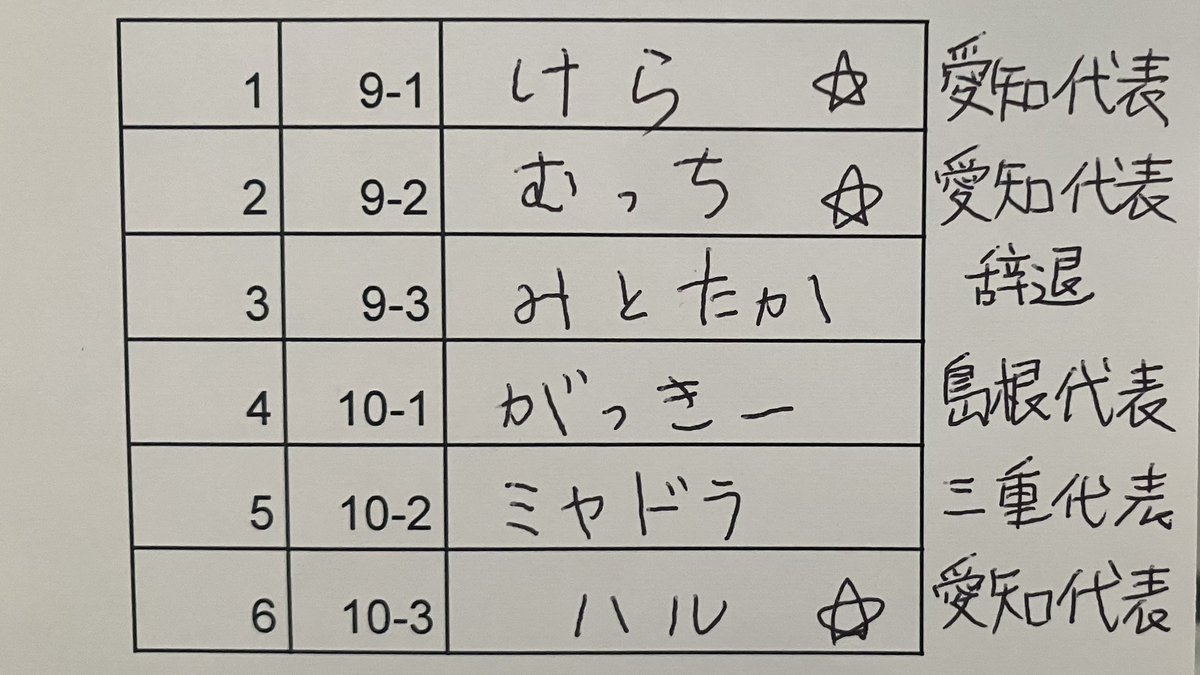 1 9-1 けら ☆ 愛知代表
2 9-2 むっち ☆ 愛知代表
3 9-3 みとたか 辞退
4 10-1 がっきー 島根代表
5 10-2 ミヤドラ 三重代表
6 10-3 ハル ☆ 愛知代表